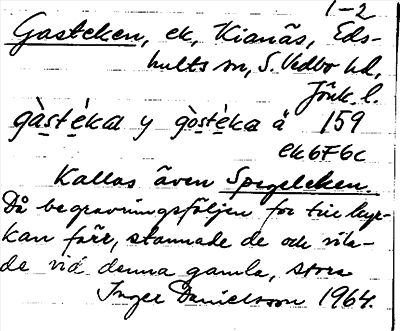 1-2
Gasteken, ek, Kianäs, Eds-
hults sn, S. Vedbo hd,
Jönk. l.
gàstéka y gòstéka å 159
ek 6F6c
Kallas även Spegeleken.
Då begravningsföljen for till kyr-
kan förr, stannade de och vila-
de vid denna gamla, stora
Inger Danielsson 1964.